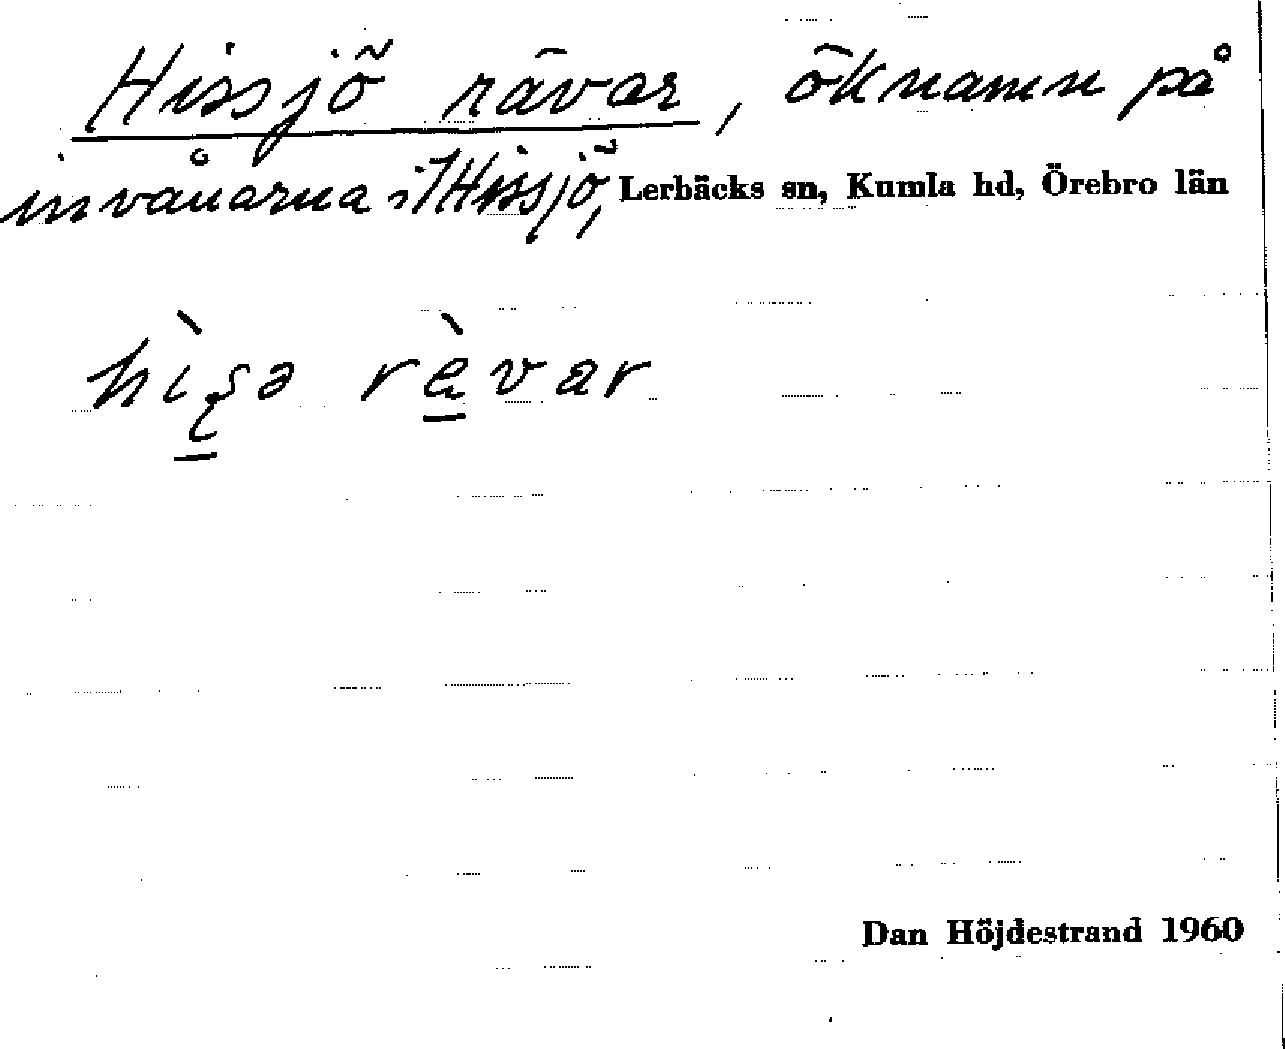 Hissjö rävar, öknamn på
invånarna i Hissjö, Lerbäcks sn, Kumla hd, Örebro län
rävar
Dan Höjdestrand 1960